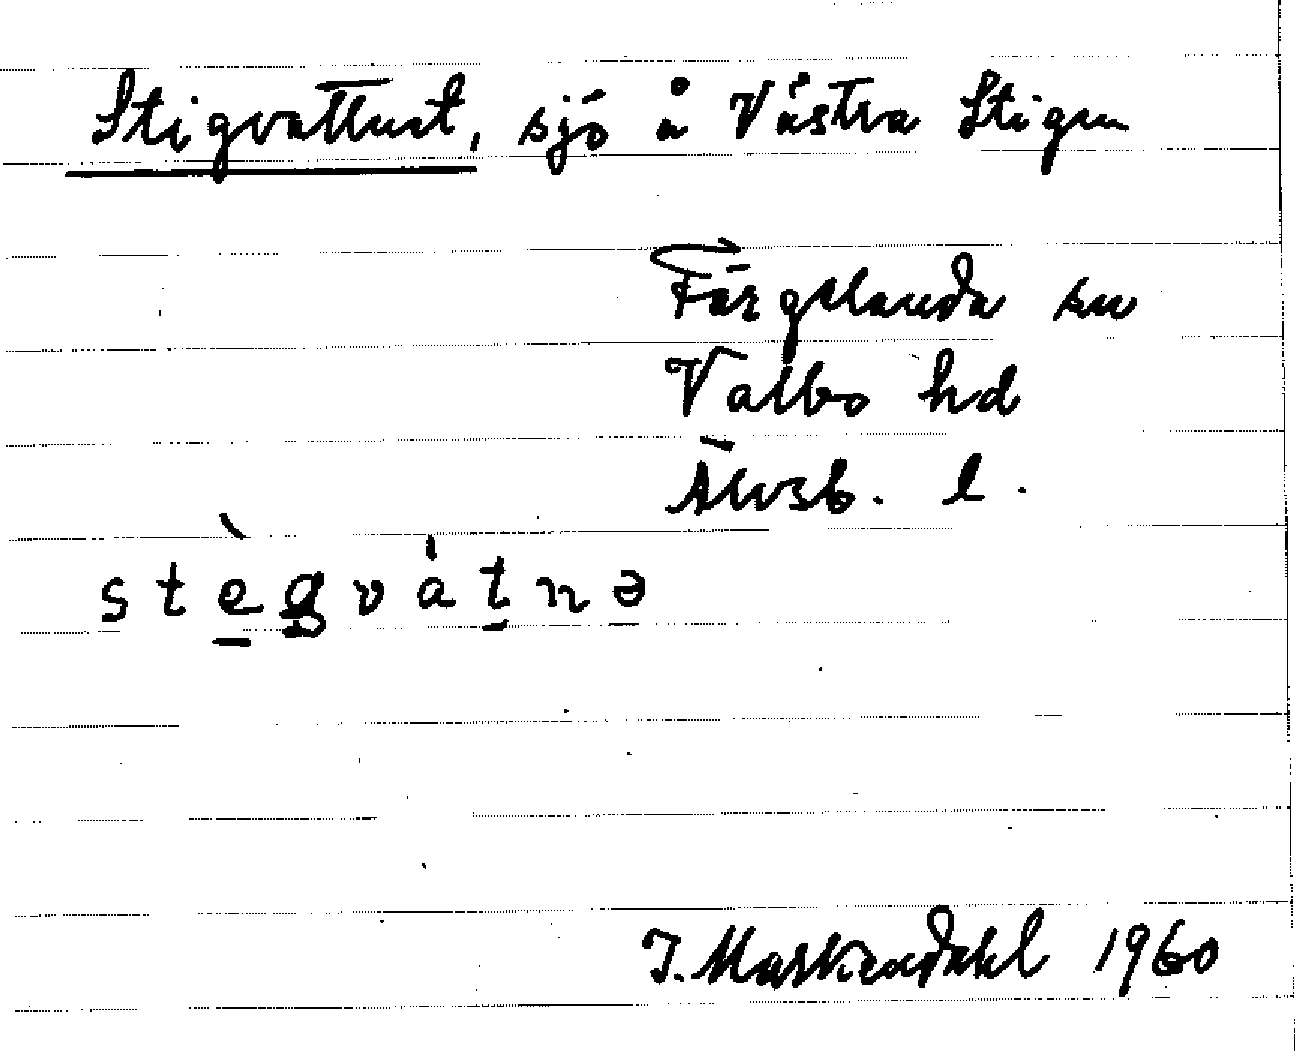 Stigvattnet, sjö å Västra Stigen
Färgelanda sn
Valbo hd
Älvsb. l.
stègvátnə
I. Markendahl 1960